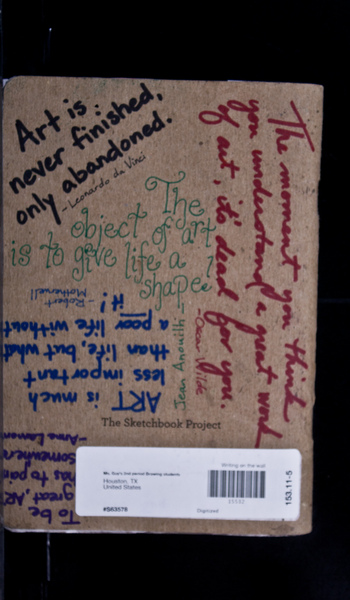 Art is:
never finished,
only abandoned.
- Leonardo da Vinci
The moment you think
you understand a great work
of art, it's dead for you.
- Oscar Wilde
The
object of art
is to give life a
shape!
Jean Anouilh -
ART is much
less important
than life, but what
a poor life without
it!
- Robert
Motherwell
To be
great AR
has to
somewher
The Sketchbook Project
2nd period Drawing students
Houston, TX
United States
#S63578
Digitized
Writing on the wall
153.11-5